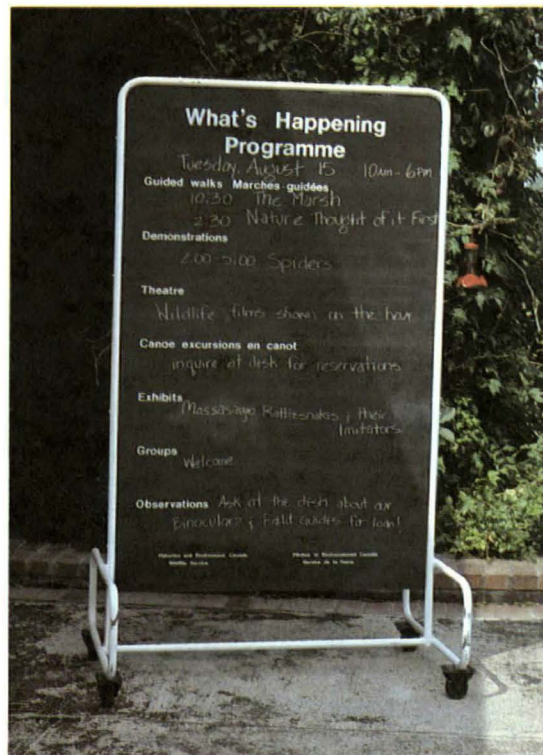 What's Happening
Programme
Tuesday, August 15 10AM - 6PM
Guided walks Marches guidées
10:30 The Marsh
2:30 Nature Thought of it First
Demonstrations
2:00-5:00 Spiders
Theatre
Wildlife films shown on the hour
Canoe excursions en canot
inquire at desk for reservations
Exhibits
Massasaga Rattlesnakes & their
Imitators
Groups
Welcome
Observations Ask at the desk about our
Binoculars & Field Guides for loan!
Fisheries and Environment Canada Pêches et Environnement Canada
Wildlife Service Service de la Faune